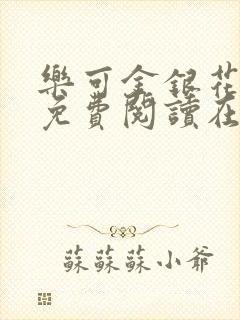 樂可金銀花
免費閱讀在
蘇蘇蘇小爺